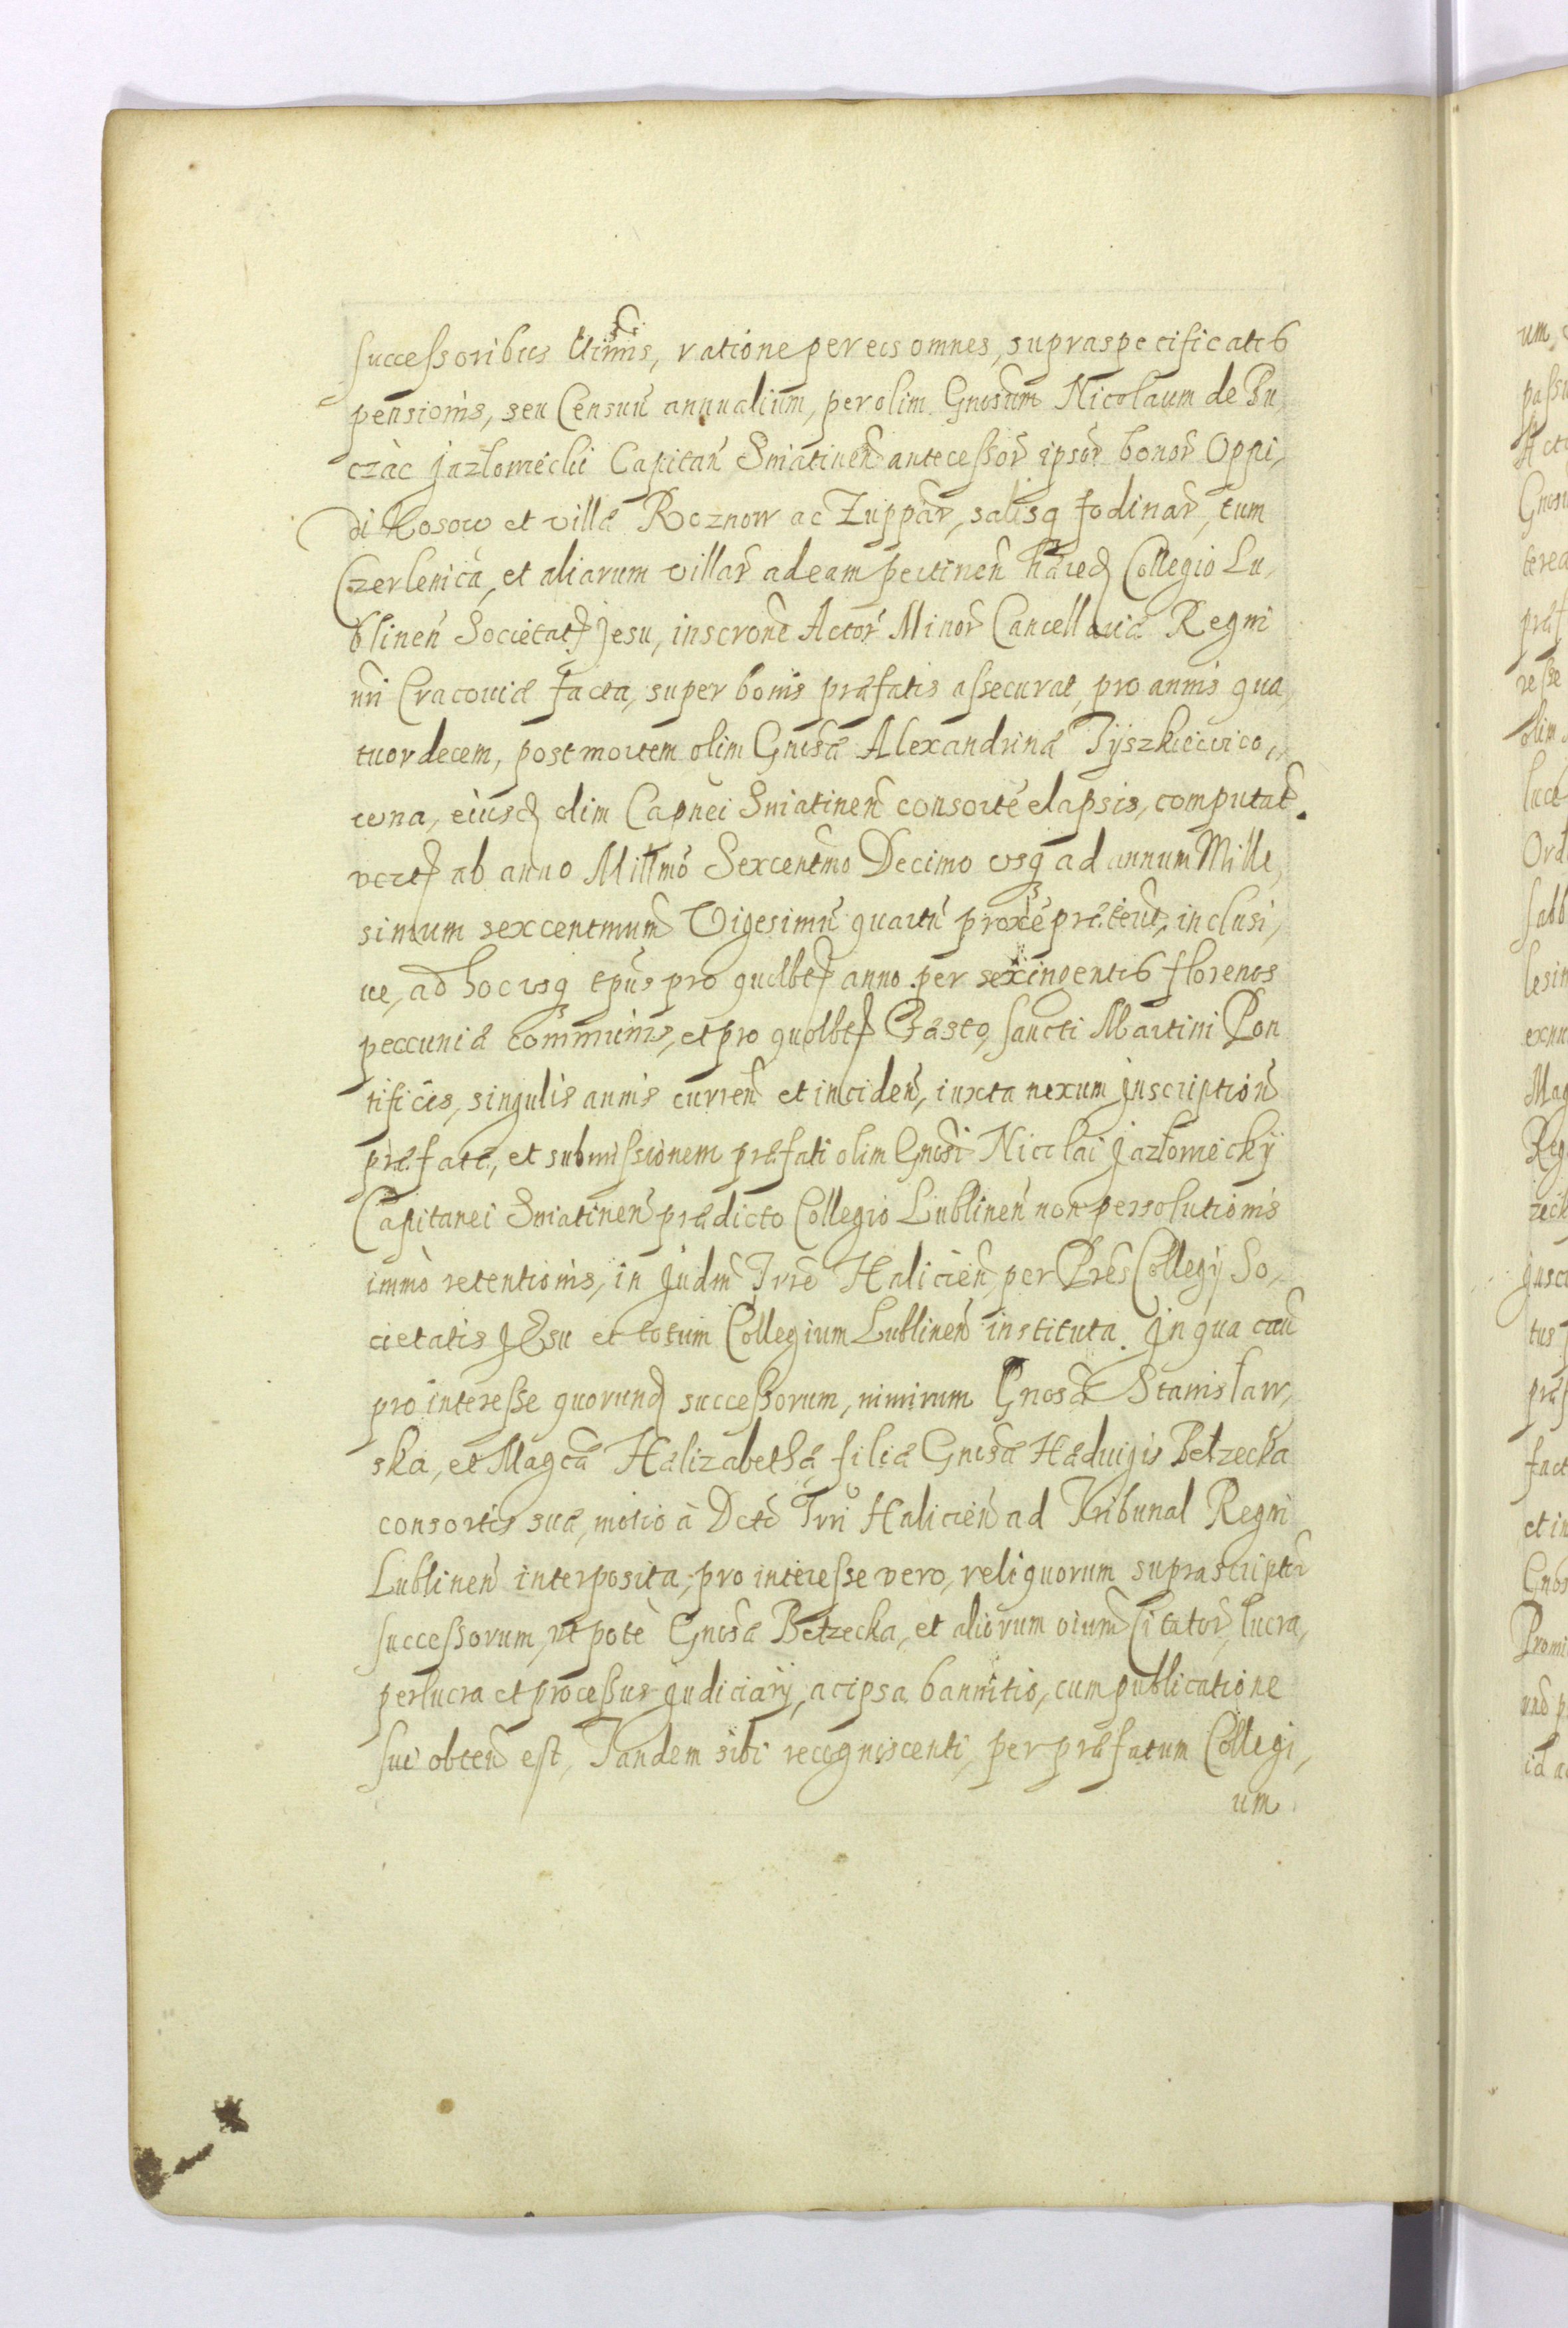 successoribus Utimis, ratione per eos omnes, supraspecificatis
pensionis, seu Censuū annualium, per olim Gnosum Nicolaum de Bu,
czàc Jazłowiecki Capitan̄ Sniatinen̄ antecessor̄ ipsor̄ bonor̄ Oppi,
di Kosow et villæ Roznow ac Zuppar̄, salisq fodinar̄, tum
Czerlenica, et aliarum villar̄ ad eam pertinen̄ hæred Collegio Lu,
blinen̄ Societat Jesu, inscrone Actor̄ Minor̄ Cancellariæ Regni
nri Cracouiæ facta, super bonis præfatis assecurat, pro annis qua,
tuordecem, post mortem olim Gnosæ Alexandrinæ Tyszkiewico,
wna, eiusd olim Capnei Sniatinen̄ consorte elapsis, computat.
ab anno Millmo Sexcentmo Decimo vsq ad annum Mille,
simum sexcentmum Vigesimū quartū proxe præterit, inclusi,
ue, ad hoc vsq tpus pro quolbt anno per sexingentis florenos
peccuniæ communis, et pro quolbt Festo, sancti Martini Pon
tificis, singulis annis curren̄ et inciden̄, iuxta nexum Jnscription̄
præfatæ, et submissionem præfati olim Gnosi Nicolai Jazłowiecky
Capitanei Sniatinen̄ prædicto Collegio Lublinen̄ non persolutionis
immò retentionis, in Judm Trre Halicien̄ per Pres Collegij So,
cietatis JEsu et totum Collegium Lublinen̄ instituta. Jn qua cau
pro interesse quorund successorum, nimirum Gnosæ Stanisław,
ska, et Magcæ Hælizabethæ filiæ Gnosæ Hæduigis Bełzecka
consortis suæ, motio à Dcto Trri Halicien̄ ad Tribunal Regni
Lublinen̄ interposita, pro interesse vero, reliquorum suprascriptor̄
successorum, vt potè Gnosæ Bełzecka, et aliorum oium Citator̄, lucra,
perlucra et processus judiciarij, ac ipsa bannitio, cum publicatione
sui obten̄ est, Tandem sibi recognoscenti, per præfatum Collegi,
um